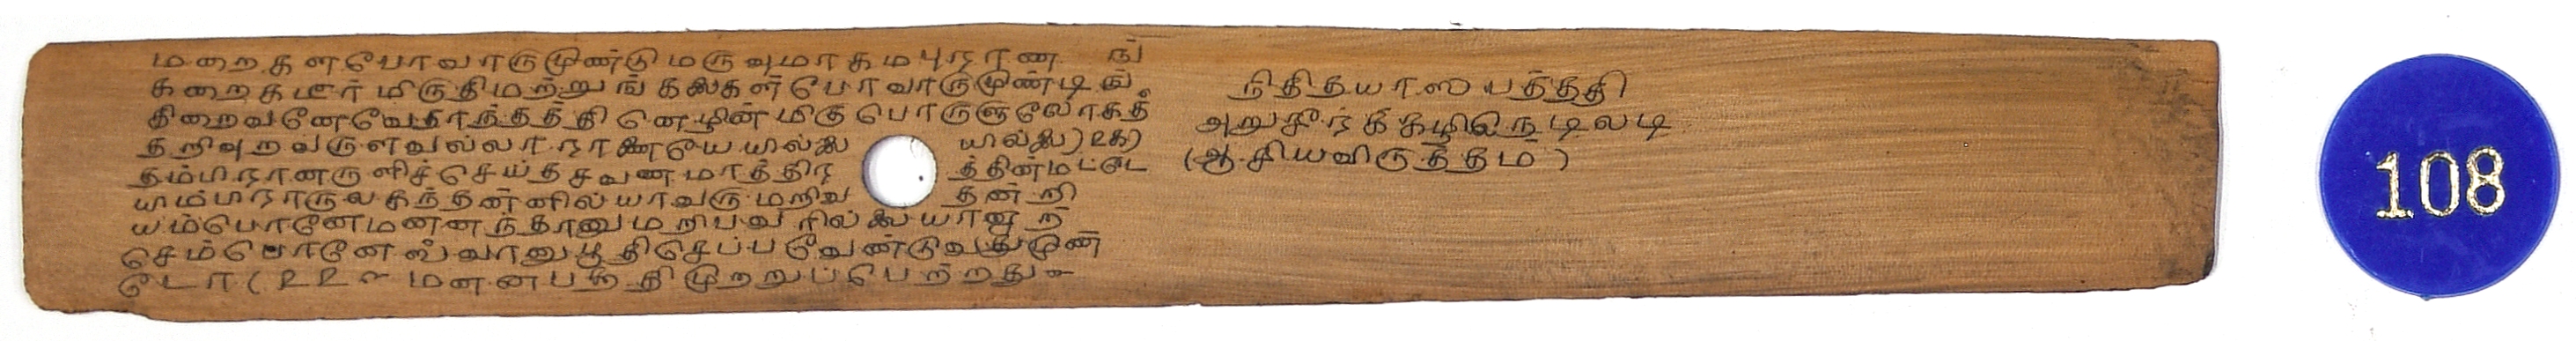 மறைகளபோவாருமுண்டுமருவுமாகமபுராண ங்
கறைகமிர் மிருதிமற்றுங் கலைகள் போவாருமுண்டிங்
கிறைவனேவேதாந்தத்தி னெழின் மிகு பொருளுலோகத்
தறிவுறவருளவல்லா ராணையே யில்லை யில்லை) ௨௧)
தம்பிரானருளிச்செய்த சவண மாத்திர த்தின்மட்டே
யிம்பராருலகந்தன்னில் யாவரு மறிவ தன் றி
யம்பொனேமனனந்தானுமறிபவ ரில்லையாவற்
செம்பொனேஸ்வானுபூதிசெப்பவேண்டுவதுமுண்
டோ ( ௨௨ ~ மனனபத்ததி முற்றுப்பெற்றது ~
நிதித்யாஸபத்ததி
அறுசீர்க் கழிநெடிலடி
(ஆசிரியவிருத்தம்)
108